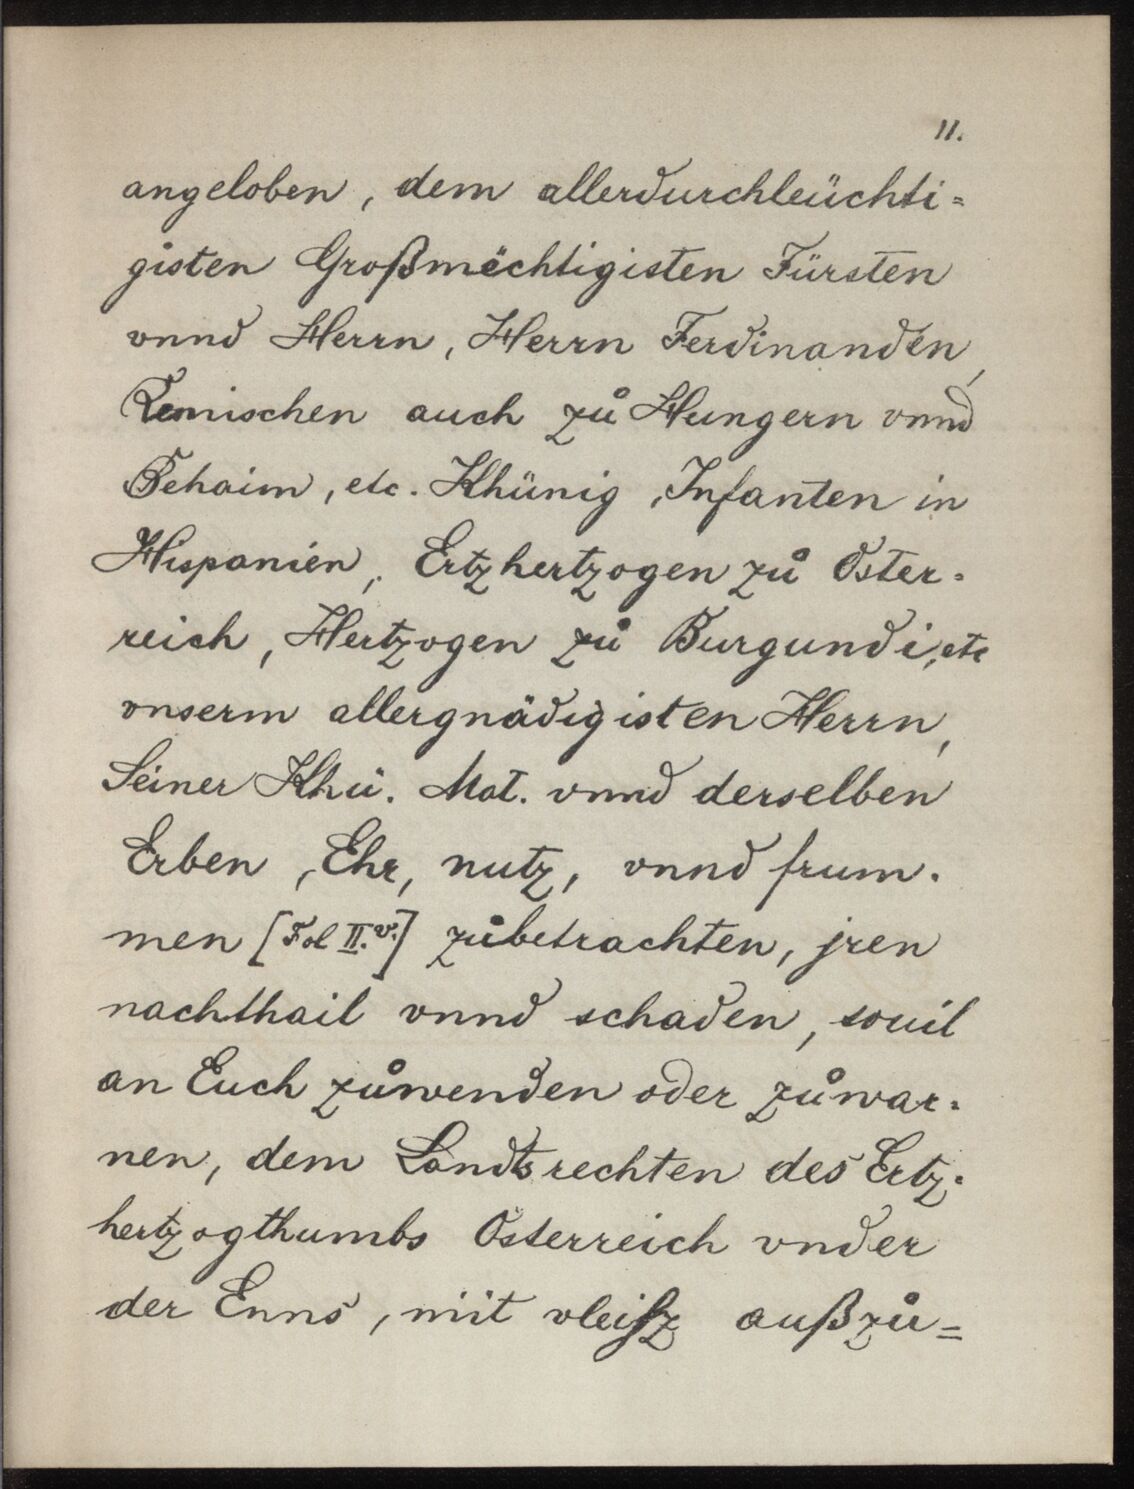 11.
angeloben, dem allerdurchleüchti=
gisten Großmëchtigisten Fürsten
vnnd Herrn, Herrn Ferdinanden,
Remischen auch zů Hungern vnnd
Behaim, etc. Khünig, Infanten in
Hispanien, Ertzhertzogen zů Öster=
reich, Hertzogen zů Burgundi, etc
vnserm allergnädigisten Herrn,
Seiner Khü. Mat. vnnd derselben
Erben, Ehr, nutz, vnnd frum=
men [Fol II. v.] zůbetrachten, jren
nachthail vnnd schaden, souil
an Euch zůwenden oder zůwar=
nen, dem Landtsrechten des Ertz=
hertzogthumbs Österreich vnder
der Enns, mit vleisz außzů=